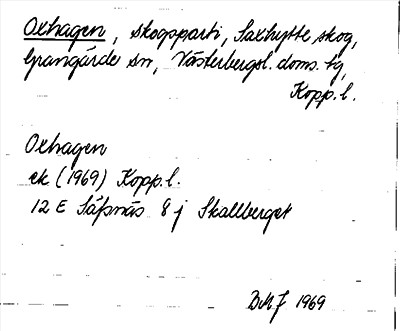 Oxhagen, skogsparti, Saxhytte skog,
Grangärde sn, Västerbergsl. doms. tg,
Kopp. l.
Oxhagen
ek (1969) Kopp. l.
12 E Säfsnäs 8 j Skallberget
DMJ 1969